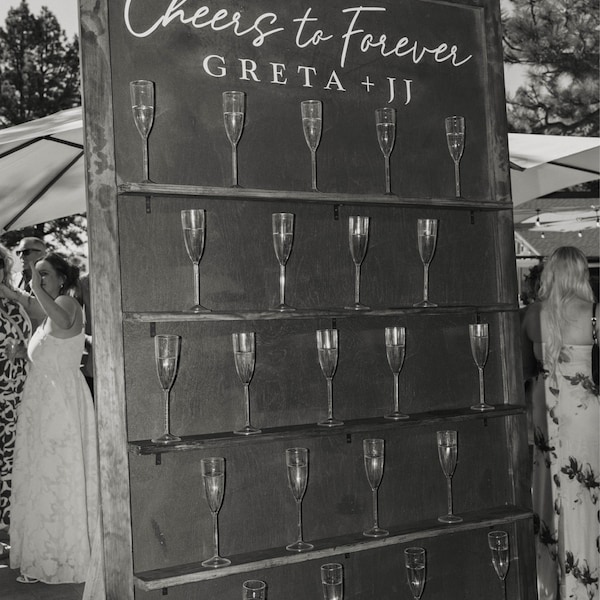 Cheers to Forever
GRETA + JJ